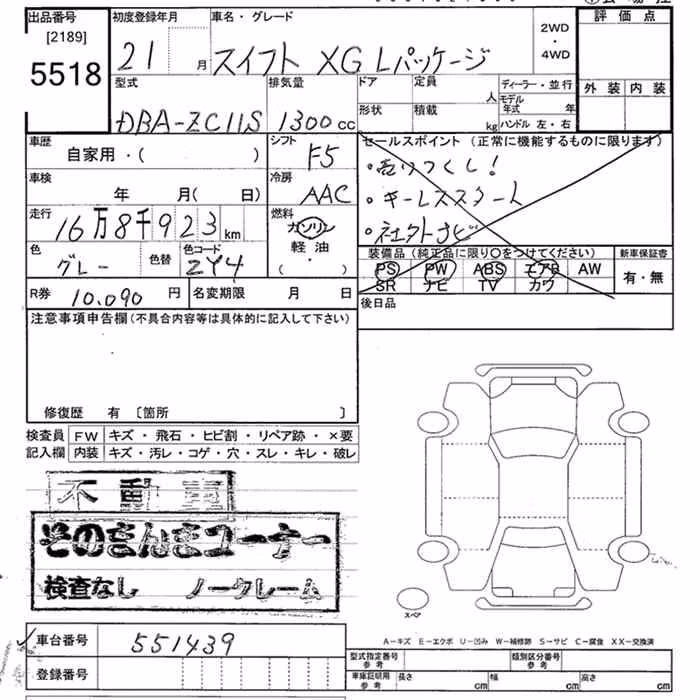 出品番号 [2189] 5518
初度登録年月 21 月
車名・グレード スイフト XG Lパッケージ
2WD ・ 4WD
評価点
外装 内装
型式 DBA-ZC11S
排気量 1300 cc
ドア
定員 人
形状
積載 kg
ディーラー・並行
モデル年式 年
ハンドル 左・右
車歴 自家用・( )
シフト F5
車検 年 月( 日)
冷房 AAC
走行 16万8千923 km
燃料 ガソリン 軽油 ・ ( )
色 グレー 色替
色コード ZY4
R券 10.090 円
名変期限 月 日
セールスポイント(正常に機能するものに限ります)
・売りつくし!
・キーレススタート
・社外ナビ
装備品(純正品に限り○をつけてください)
PS PW ABS エアB AW
SR ナビ TV カワ
新車保証書
有・無
後日品
注意事項申告欄(不具合内容等は具体的に記入して下さい)
修復歴 有 〔箇所 〕
検査員記入欄
FW キズ・飛石・ヒビ割・リペア跡・×要
内装 キズ・汚レ・コゲ・穴・スレ・キレ・破レ
不動車
そのまんまコーナー
検査なし ノークレーム
スペア
A-キズ E-エクボ U-凹み W-補修跡 S-サビ C-腐食 XX-交換済
車台番号 551439
登録番号
型式指定番号 参考
類別区分番号 参考
車庫証明用 参考 長さ cm 幅 cm 高さ cm